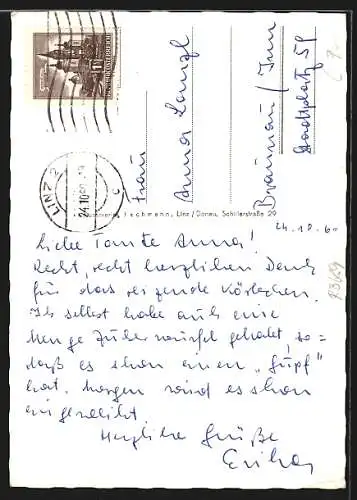 REPUBLIK ÖSTERREICH
LINZ 2
24.10.60
c
Frau
Anna Lanzl
Braunau / Inn
Stadtplatz 59
Linz / Donau, Schillerstraße 29
24.10.60
Liebe Tante Anna!
Recht, recht herzlichen Dank
für das reizende Körbchen.
Ich selbst habe auch eine
Menge Zuckerwürfel gehabt, so=
daß es schon einen "Gupf"
hat. Morgen wird es schon
eingeweiht
Herzliche Grüße
Erika